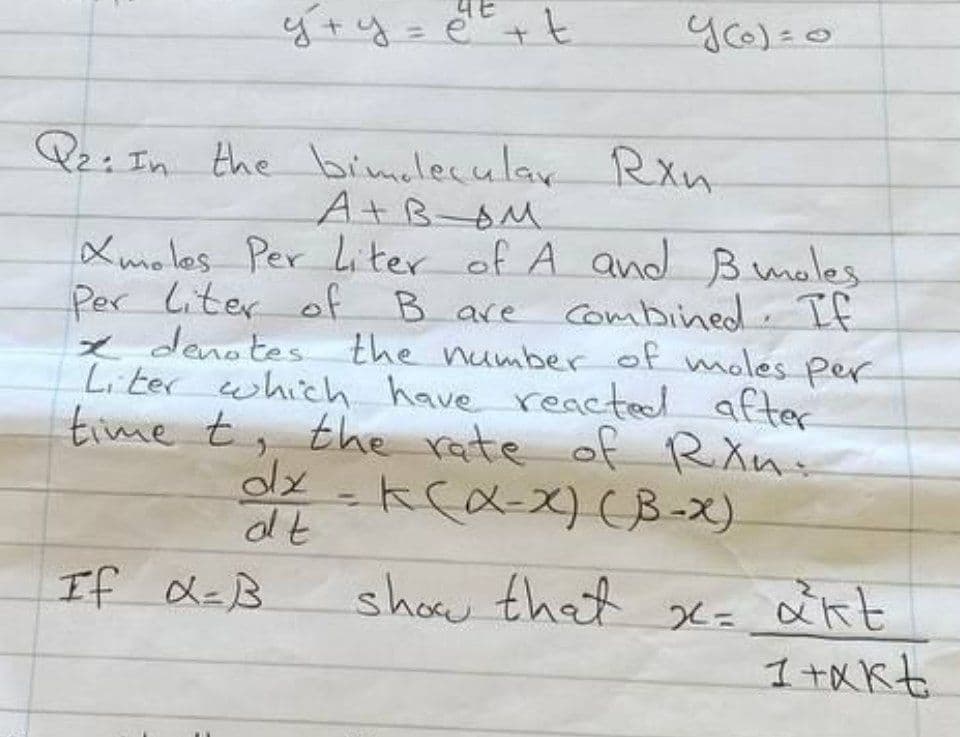 y' + y = e^4t + t y(0) = 0
Q2: In the bimolecular Rxn
A + B → M
α moles Per Liter of A and β moles
Per Liter of B are combined. If
x denotes the number of moles per
Liter which have reacted after
time t, the rate of RXn:
dx/dt = K(α-x)(β-x)
If α=β show that x = α²kt / 1+αkt